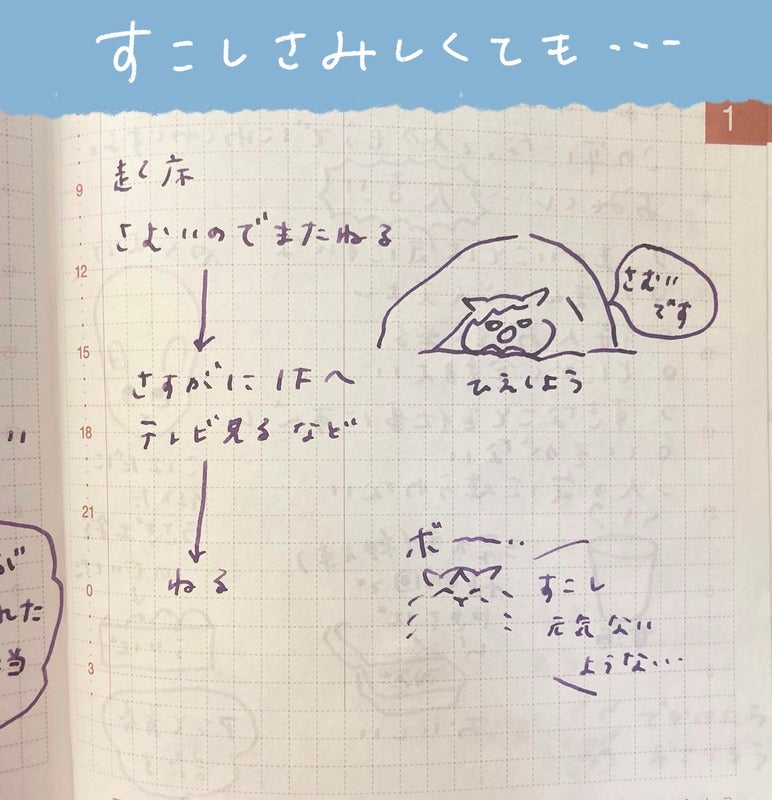 すこしさみしくても・・・
1
9
さむいのでまたねる
12
さむい
です
15
さすがに1Fへ
ひえしょう
18
テレビ見るなど
21
ボー・・
0
ねる
すこし
元気ない
ような・・・
3
れた
当